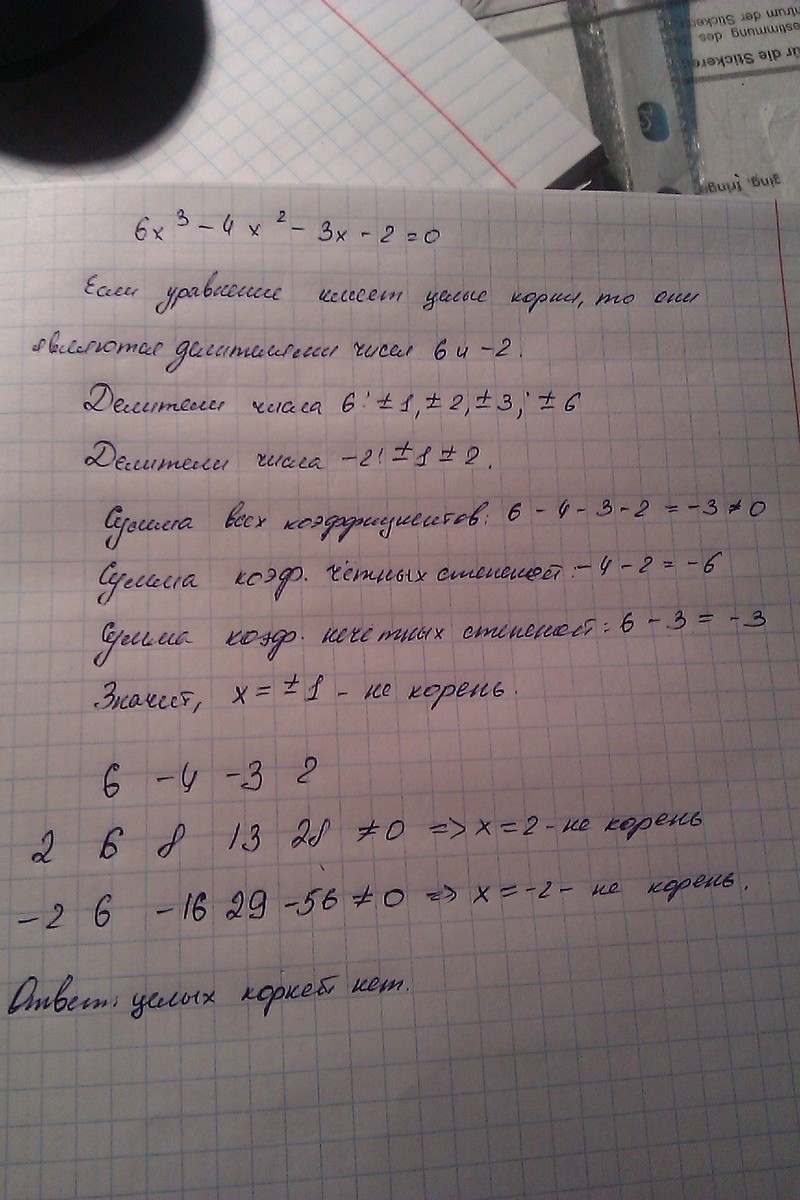 ntrum der Sticker
estimmung des
ür die Stickere
ging, fring
6x³ - 4x² - 3x - 2 = 0
Если уравнение имеет целые корни, то они
являются делителями чисел 6 и -2.
Делители числа 6: ±1, ±2, ±3; ±6
Делители числа -2: ±1 ±2.
Сумма всех коэффициентов: 6 - 4 - 3 - 2 = -3 ≠ 0
Сумма коэф. чётных степеней: -4 - 2 = -6
Сумма коэф. нечётных степеней: 6 - 3 = -3
Значит, x = ±1 - не корень.
6 -4 -3 2
2 6 8 13 28 ≠ 0 => x = 2 - не корень
-2 6 -16 29 -56 ≠ 0 => x = -2 - не корень.
Ответ: целых корней нет.